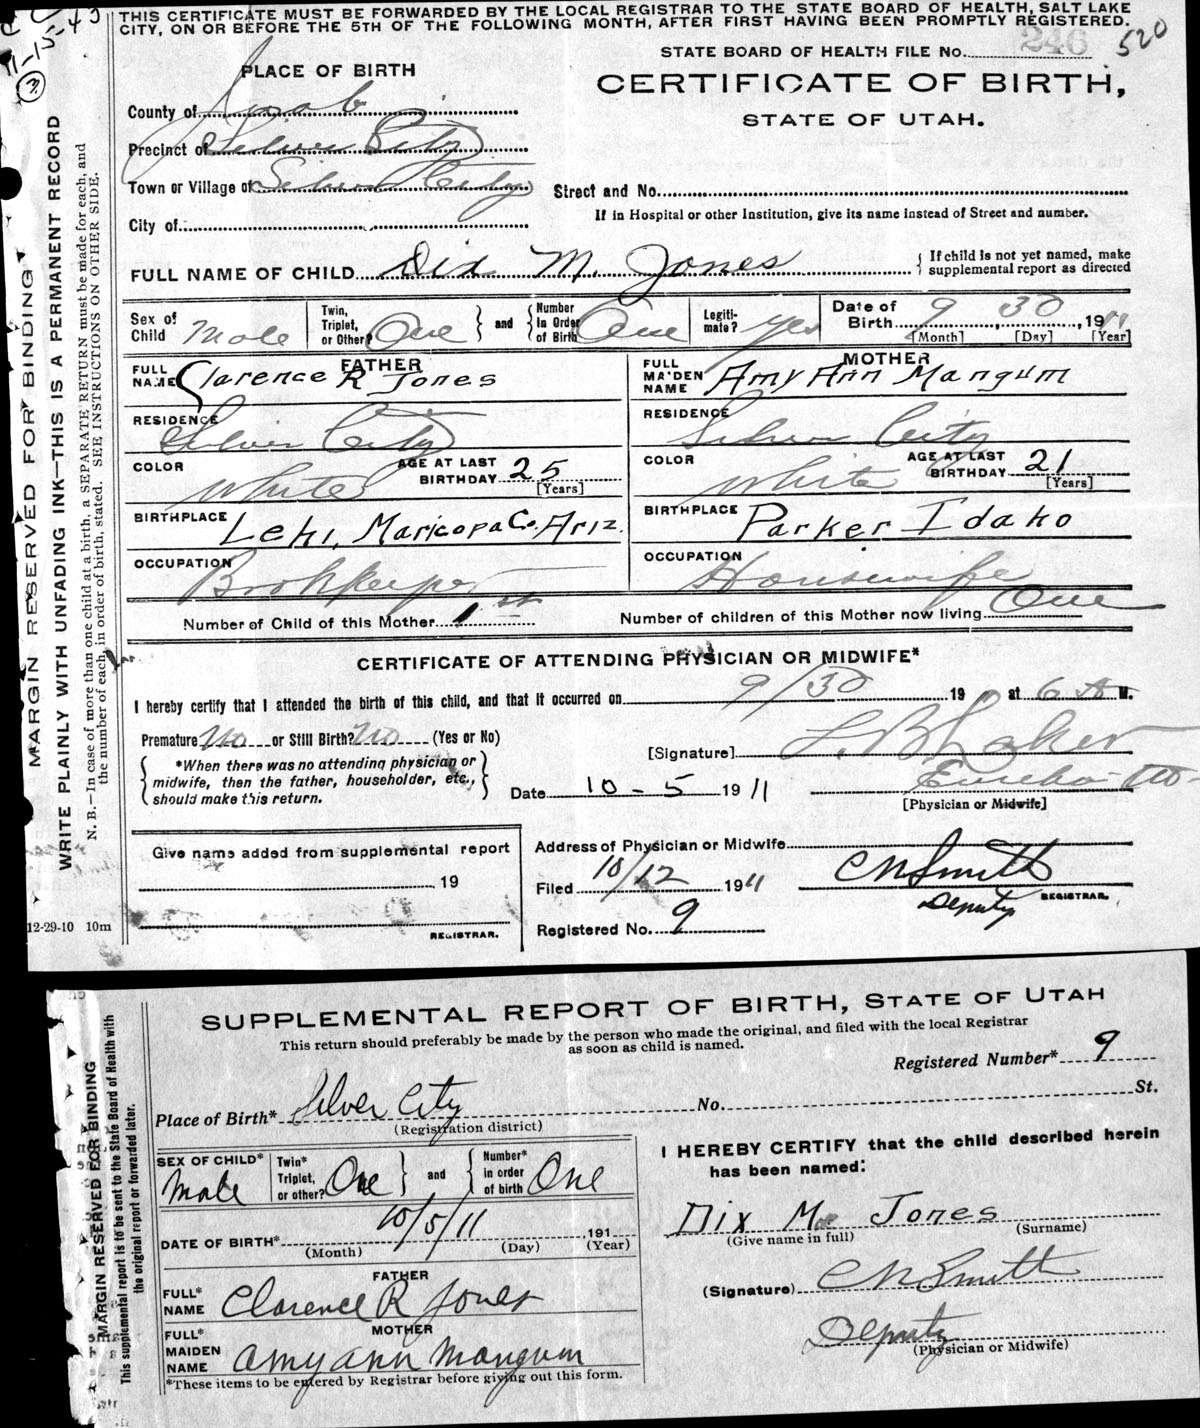 THIS CERTIFICATE MUST BE FORWARDED BY THE LOCAL REGISTRAR TO THE STATE BOARD OF HEALTH, SALT LAKE
CITY, ON OR BEFORE THE 5TH OF THE FOLLOWING MONTH, AFTER FIRST HAVING BEEN PROMPTLY REGISTERED.
11-15-43
3
STATE BOARD OF HEALTH FILE No. 246 520
PLACE OF BIRTH
CERTIFICATE OF BIRTH,
STATE OF UTAH.
County of Juab
Precinct of Silver City
Town or Village of Silver City Street and No.
If in Hospital or other Institution, give its name instead of Street and number.
City of
FULL NAME OF CHILD Dix M. Jones { If child is not yet named, make supplemental report as directed
Sex of Child Male Twin, Triplet, or Other? One } and { Number in Order of Birth One Legitimate? Yes Date of Birth 9, 30, 1911
[Month] [Day] [Year]
FATHER MOTHER
FULL NAME Clarence R Jones FULL MAIDEN NAME Amy Ann Mangum
RESIDENCE Silver City RESIDENCE Silver City
COLOR White AGE AT LAST BIRTHDAY 25 [Years] COLOR White AGE AT LAST BIRTHDAY 21 [Years]
BIRTHPLACE Lehi, Maricopa Co. Ariz. BIRTHPLACE Parker Idaho
OCCUPATION Bookkeeper OCCUPATION Housewife
Number of Child of this Mother 1st Number of children of this Mother now living One
CERTIFICATE OF ATTENDING PHYSICIAN OR MIDWIFE*
I hereby certify that I attended the birth of this child, and that it occurred on 9/30 19 at 6 A M.
Premature No or Still Birth? No (Yes or No)
[Signature]
{ *When there was no attending physician or midwife, then the father, householder, etc., should make this return. }
Eureka
Date 10-5 1911
[Physician or Midwife]
Give name added from supplemental report
19
REGISTRAR.
Address of Physician or Midwife
Filed 10/12 1911 C N Smith
Deputy REGISTRAR.
Registered No. 9
12-29-10 10m
MARGIN RESERVED FOR BINDING
WRITE PLAINLY WITH UNFADING INK—THIS IS A PERMANENT RECORD
N. B.—In case of more than one child at a birth, a SEPARATE RETURN must be made for each, and
the number of each, in order of birth, stated. SEE INSTRUCTIONS ON OTHER SIDE.
SUPPLEMENTAL REPORT OF BIRTH, STATE OF UTAH
This return should preferably be made by the person who made the original, and filed with the local Registrar
as soon as child is named.
Registered Number* 9
Place of Birth* Silver City No. St.
(Registration district)
SEX OF CHILD* Male Twin* Triplet, or other? One } and { Number* in order of birth One
DATE OF BIRTH* 10/5/11, 191
(Month) (Day) (Year)
FATHER
FULL* NAME Clarence R Jones
MOTHER
FULL* MAIDEN NAME Amy Ann Mangum
*These items to be entered by Registrar before giving out this form.
I HEREBY CERTIFY that the child described herein
has been named:
Dix M Jones
(Give name in full) (Surname)
(Signature) C N Smith
Deputy
(Physician or Midwife)
MARGIN RESERVED FOR BINDING
This supplemental report is to be sent to the State Board of Health with
the original report or forwarded later.